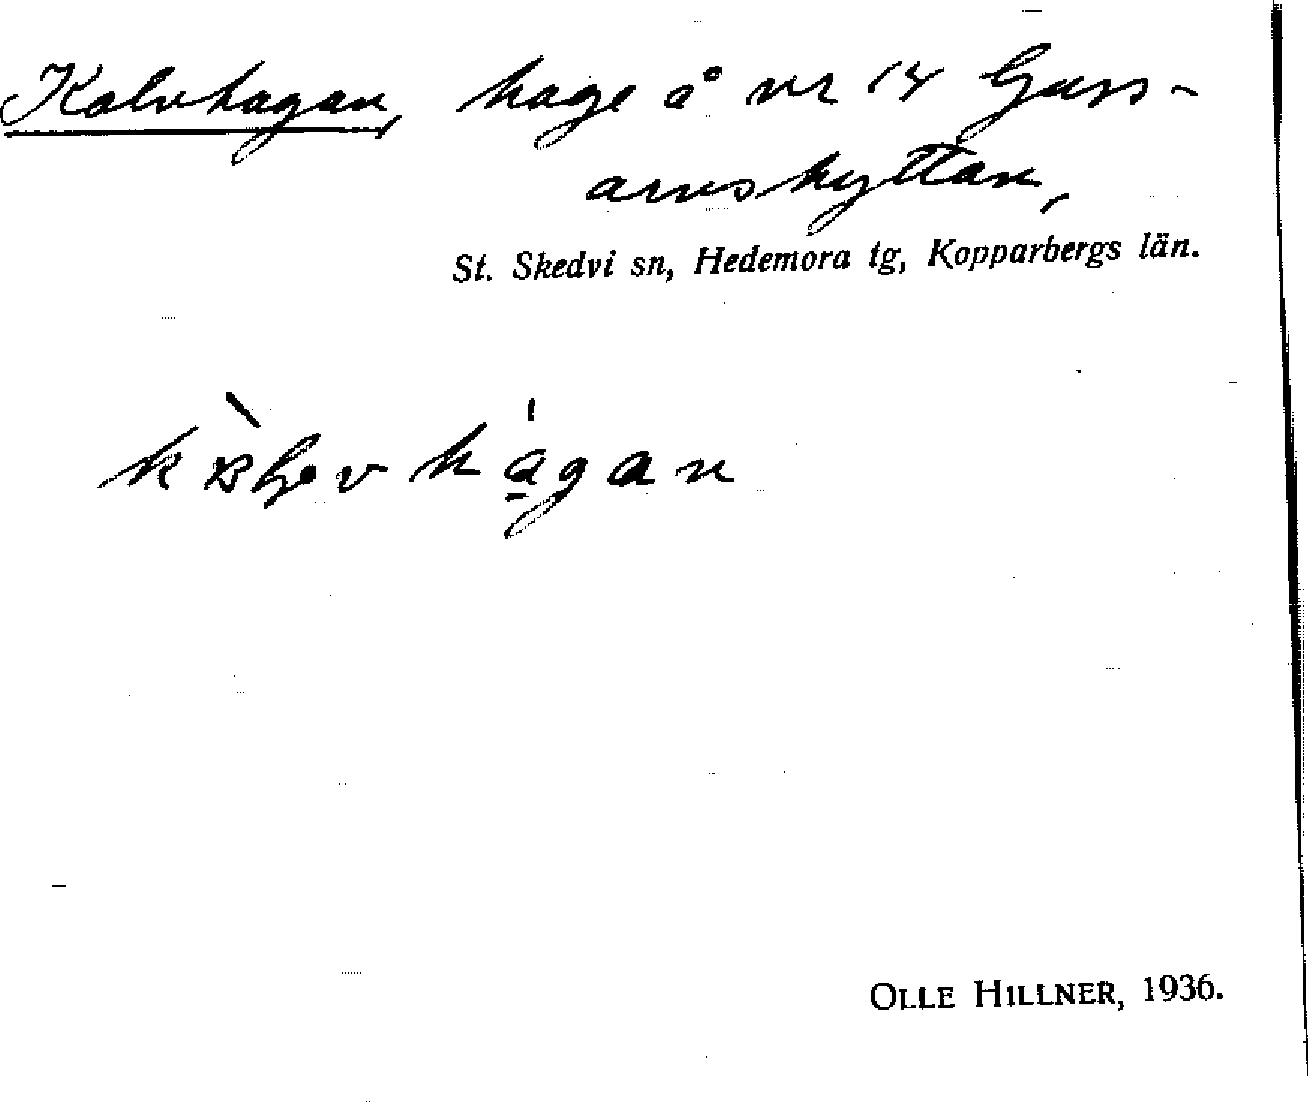 Kalvhagan, hage å nr 14 Guss-
arvshyttan,
St. Skedvi sn, Hedemora tg, Kopparbergs län.
OLLE HILLNER, 1936.